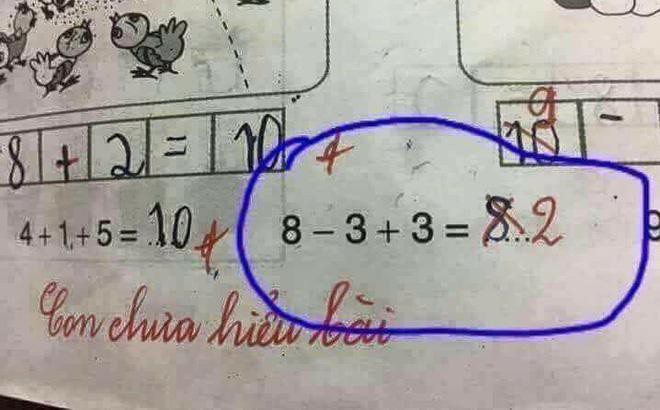 8 + 2 = 10
9
10 -
4 + 1 + 5 = 10
8 – 3 + 3 = 8 2
9
Con chưa hiểu bài